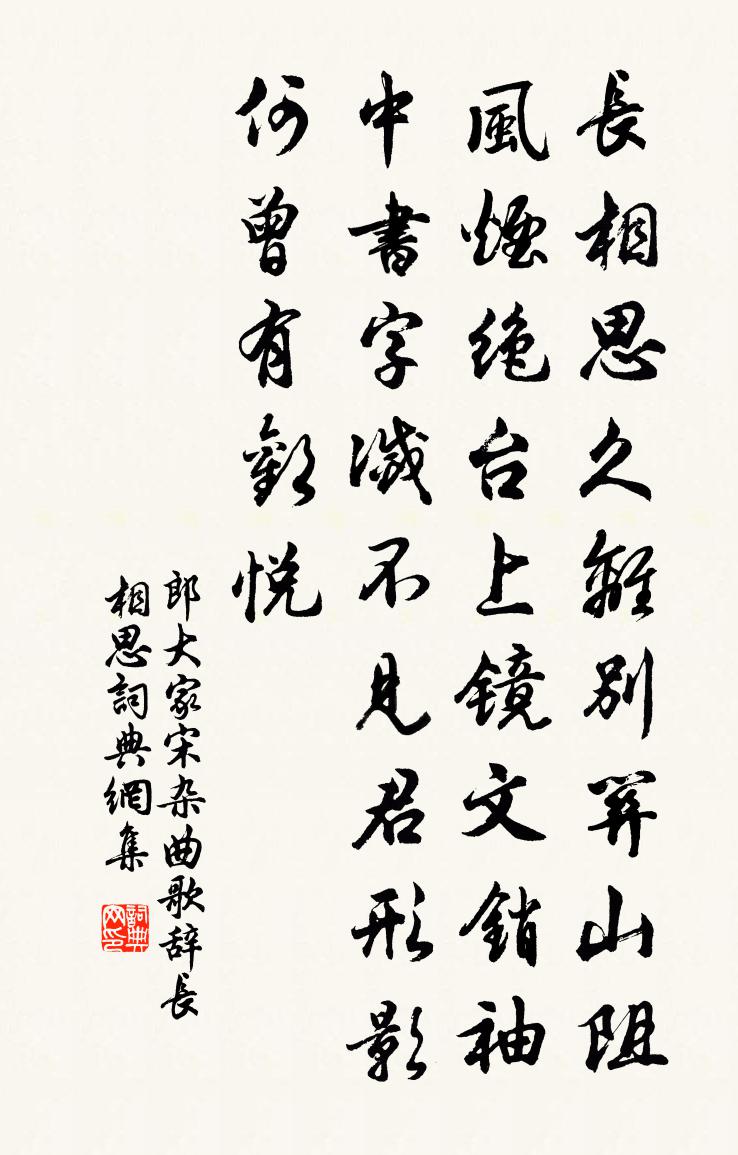 長相思久離別關山阻
風煙絶台上鏡文銷袖
中書字滅不見君形影
何曾有歡悅
郎大家宋杂曲歌辞長
相思詞典網集
詞典网印